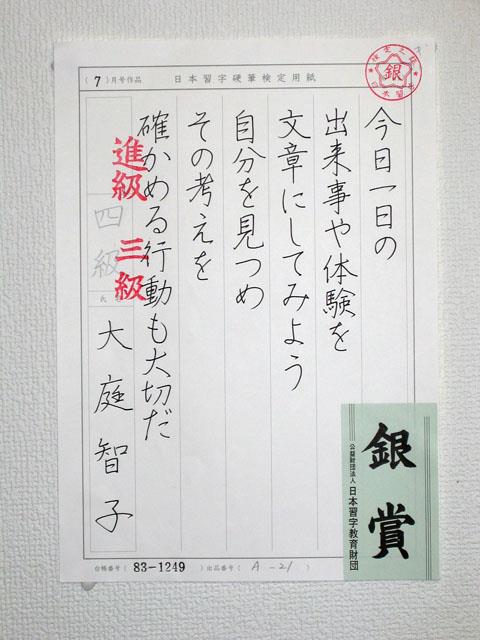 (7)月号作品
日本習字硬筆検定用紙
銀
今日一日の
出来事や体験を
文章にしてみよう
自分を見つめ
その考えを
確かめる行動も大切だ
進級 三級
四級
大庭智子
銀賞
公益財団法人 日本習字教育財団
台帳番号(83-1249)出品番号(A-21)